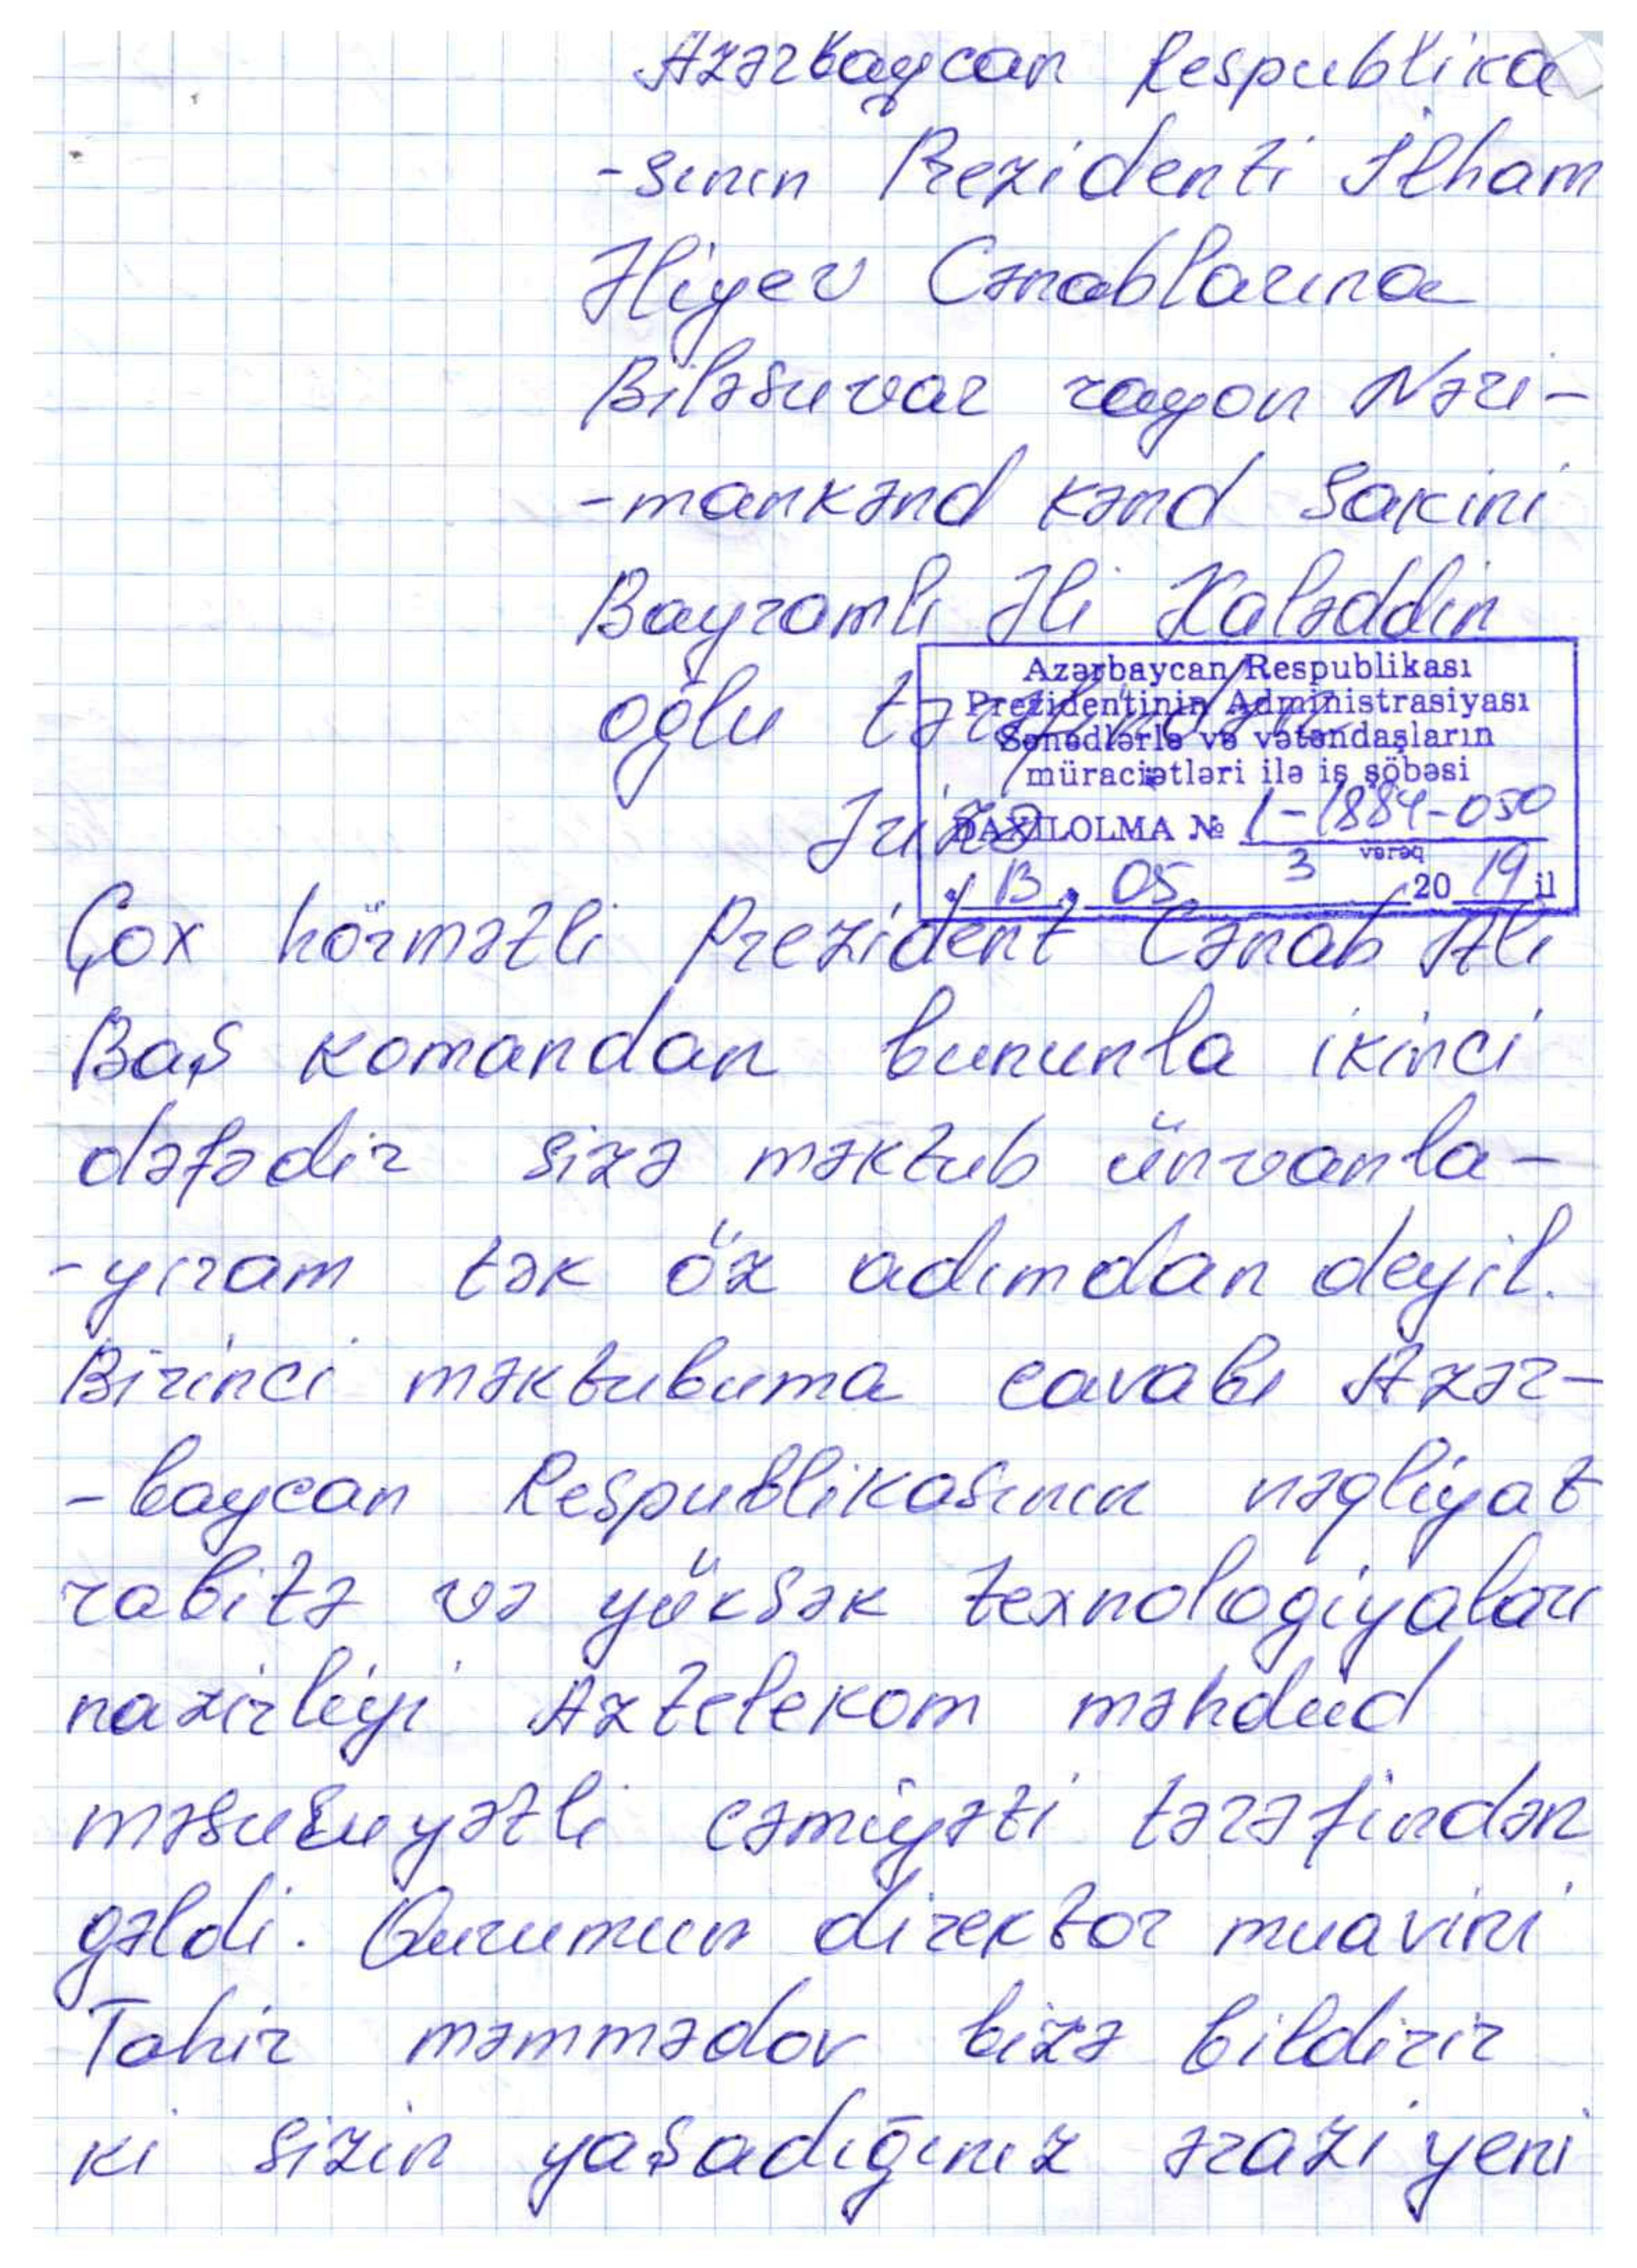 Azərbaycan Respublika
-sının Prezidenti İlham
Əliyev Cənablarına
Biləsuvar rayon Nəri-
-mankənd kənd Sakini
Bayramlı Əli Xaləddin
oğlu tərəfindən
Ərizə
Azərbaycan Respublikası
Prezidentinin Administrasiyası
Sənədlərlə və vətəndaşların
müraciətləri ilə iş şöbəsi
DAXİLOLMA № 1-1884-050
3 vərəq
"13" 05 2019 il
Çox hörmətli Prezident Cənab Ali
Baş komandan bununla ikinci
dəfədir sizə məktub ünvanla-
-yıram tək öz adımdan deyil.
Birinci məktubuma cavabı Azər-
-baycan Respublikasının nəqliyat
rabitə və yüksək texnologiyaları
nazirliyi Aztelekom məhdud
məsuluyətli cəmiyəti tərəfindən
gəldi. Qurumun direktor muavini
Tahir məmmədov bizə bildirir
ki sizin yaşadığınız ərazi yeni